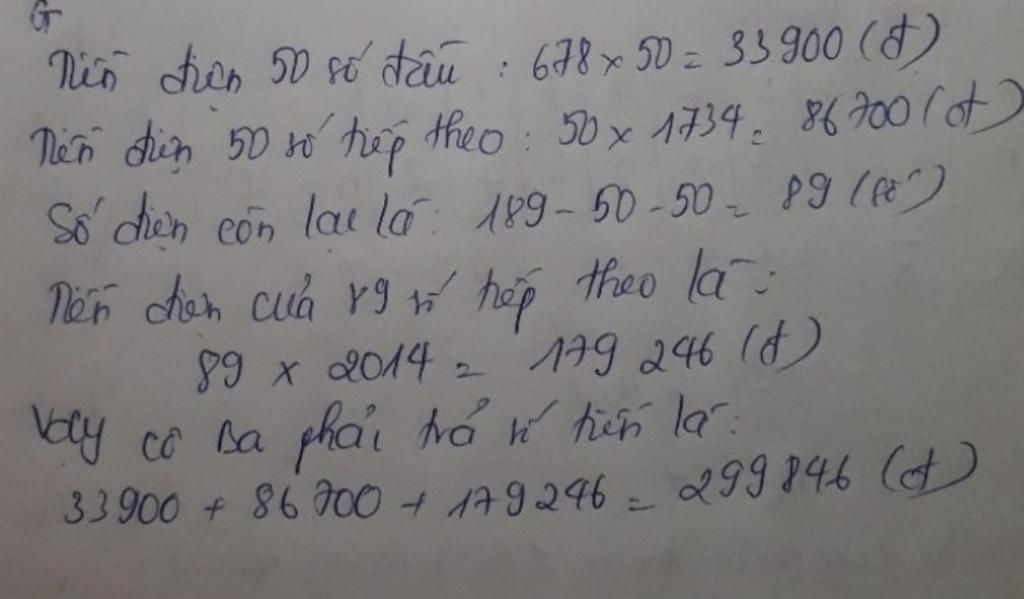 G
Tiền điện 50 số đầu : 678 x 50 = 33900 (đ)
Tiền điện 50 số tiếp theo : 50 x 1734 = 86700 (đ)
Số điện còn lại là : 189 - 50 - 50 = 89 (số)
Tiền điện của 89 số tiếp theo là :
89 x 2014 = 179 246 (đ)
Vậy cô Ba phải trả số tiền là :
33900 + 86700 + 179246 = 299846 (đ)